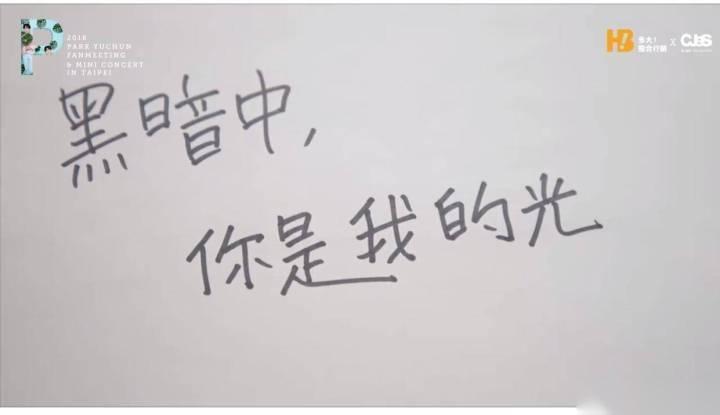 2018
PARK YUCHUN
FANMEETING
& MINI CONCERT
IN TAIPEI
P
HB
多大!
整合行銷
X
CJeS
黑暗中,
你是我的光